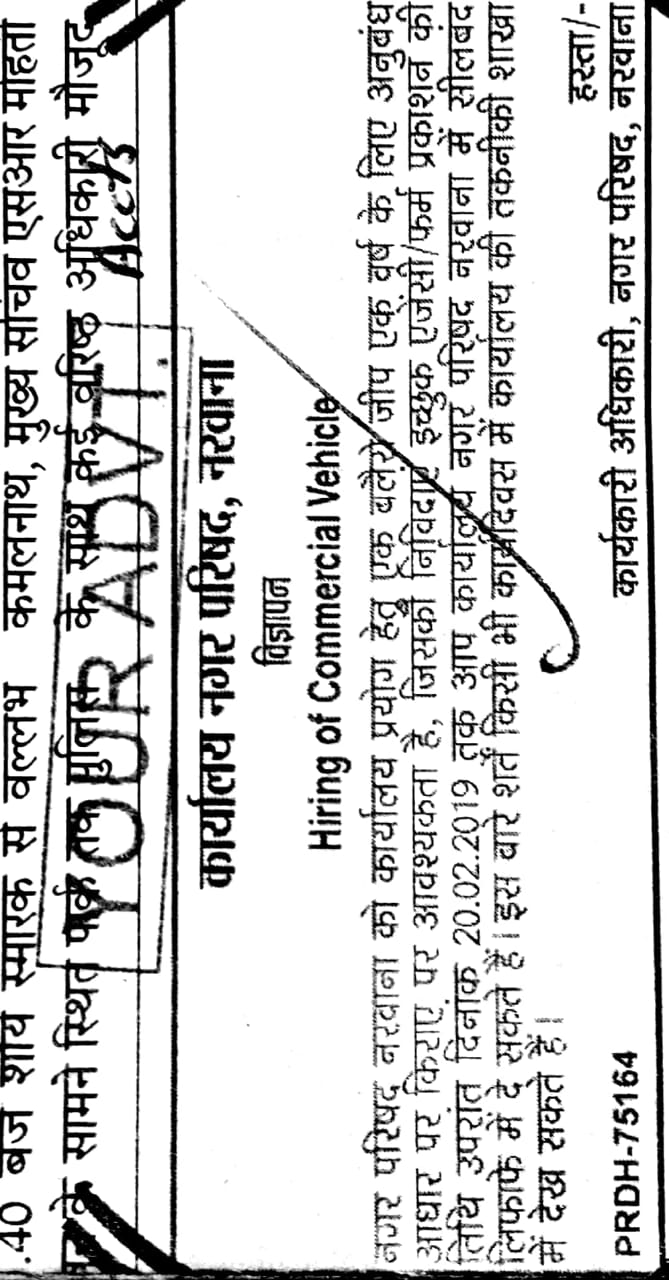 .40 बजे शौर्य स्मारक से वल्लभ कमलनाथ, मुख्य सचिव एसआर मोहंती
के सामने स्थित पार्क तक पुलिस के साथ कई वरिष्ठ अधिकारी मौजूद
YOUR ADVT.
कार्यालय नगर परिषद, नरवाना
विज्ञापन
Hiring of Commercial Vehicle
नगर परिषद नरवाना को कार्यालय प्रयोग हेतु एक बलैरो जीप एक वर्ष के लिए अनुबंध
आधार पर किराए पर आवश्यकता है, जिसकी निविदाएं इच्छुक एजेंसी/फर्म प्रकाशन की
तिथि उपरांत दिनांक 20.02.2019 तक आप कार्यालय नगर परिषद नरवाना में सीलबंद
लिफाफे में दे सकते हैं। इस बारे शर्तें किसी भी कार्यदिवस में कार्यालय की तकनीकी शाखा
में देख सकते हैं।
हस्ता/-
PRDH-75164 कार्यकारी अधिकारी, नगर परिषद, नरवाना